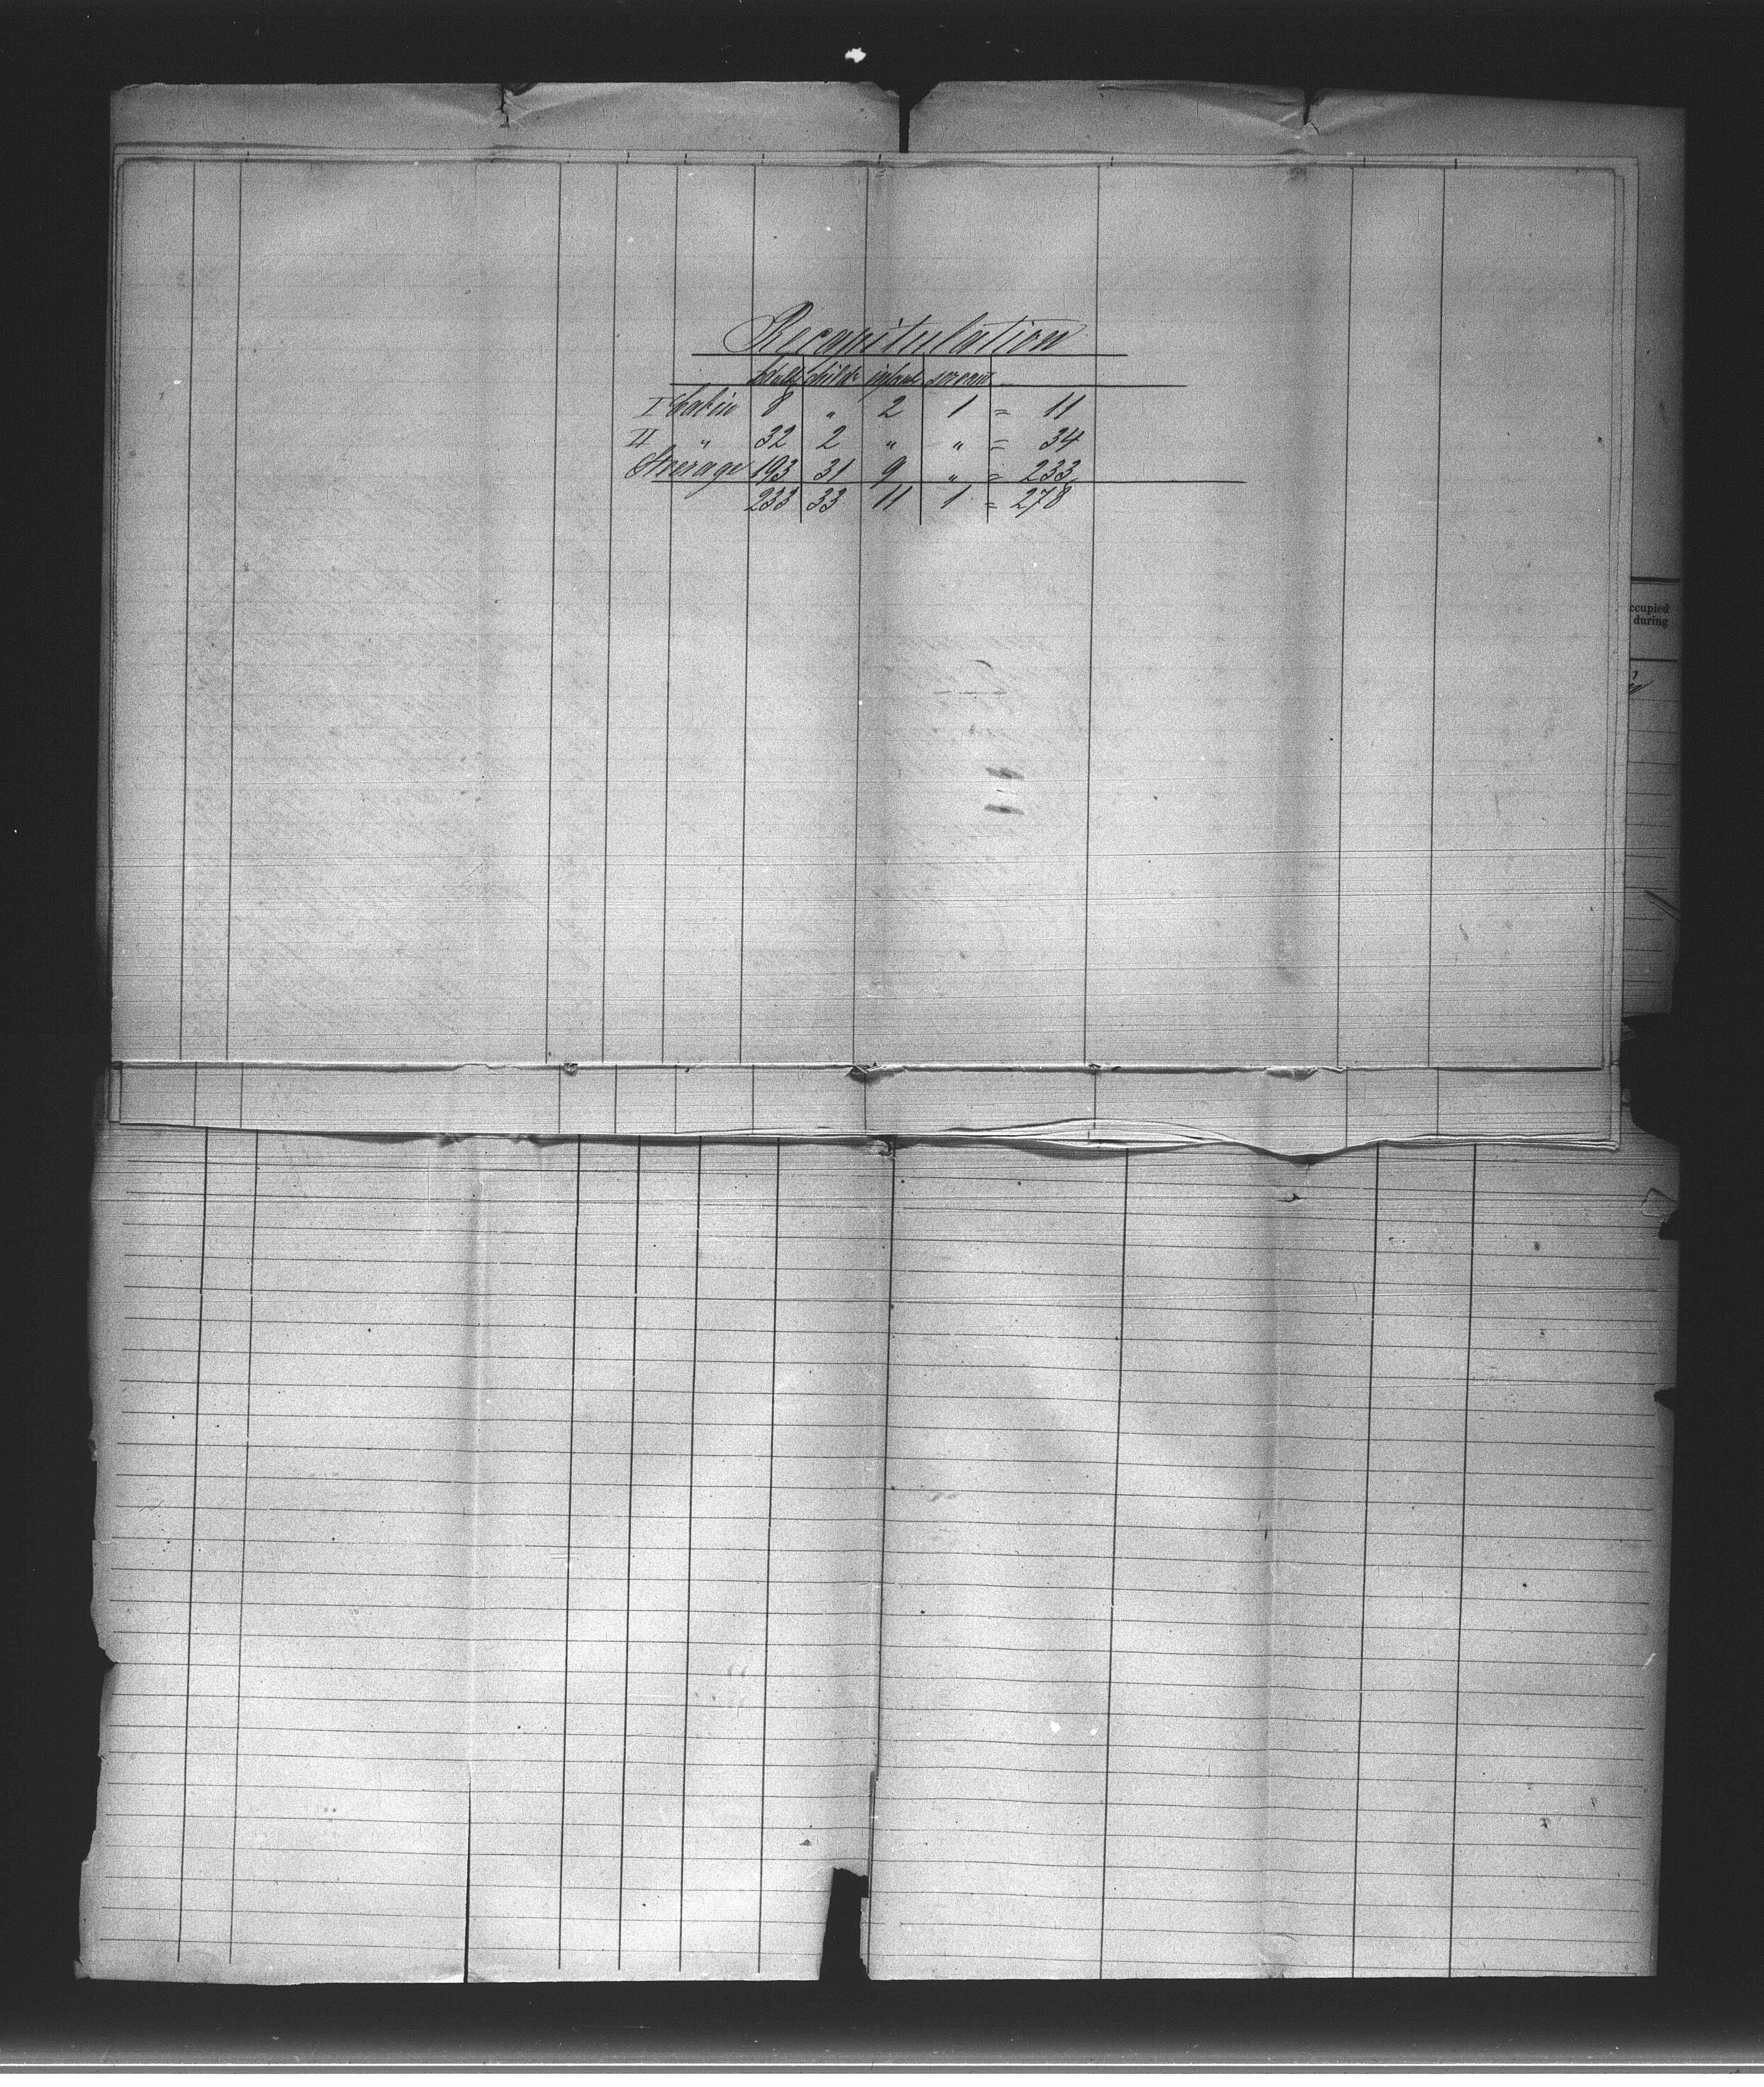 Recapitulation
Adults childr infants servant
I Cabin 8 " 2 1 = 11
II " 32 2 " " = 34
Steerage 193 31 9 " = 233
233 33 11 1 = 278
ccupied
during